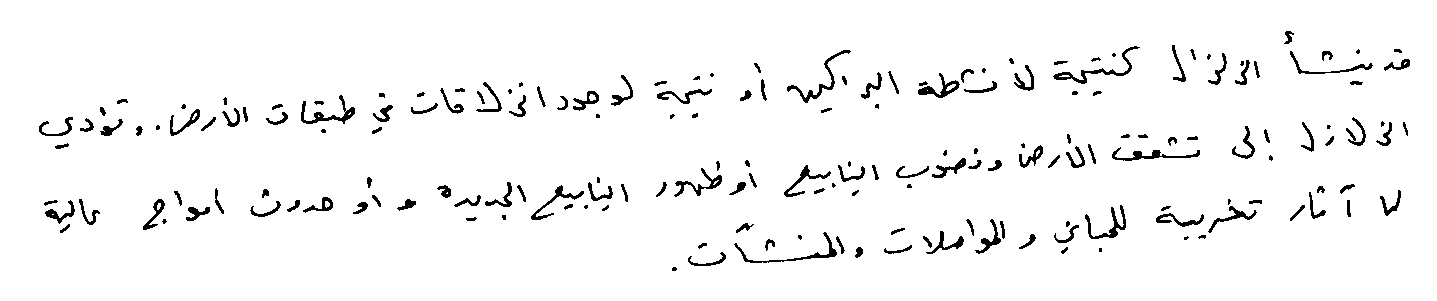 قد ينشأ الزلزال كنتيجة لأنشطة البراكين أو نتيجة لوجود انزلاقات في طبقات الأرض. وتؤدي
الزلازل إلى تشقق الأرض ونضوب الينابيع أو ظهور الينابيع الجديدة و أو حدوث امواج عالية
لها آثار تخريبية للمباني والمواصلات والمنشآت.